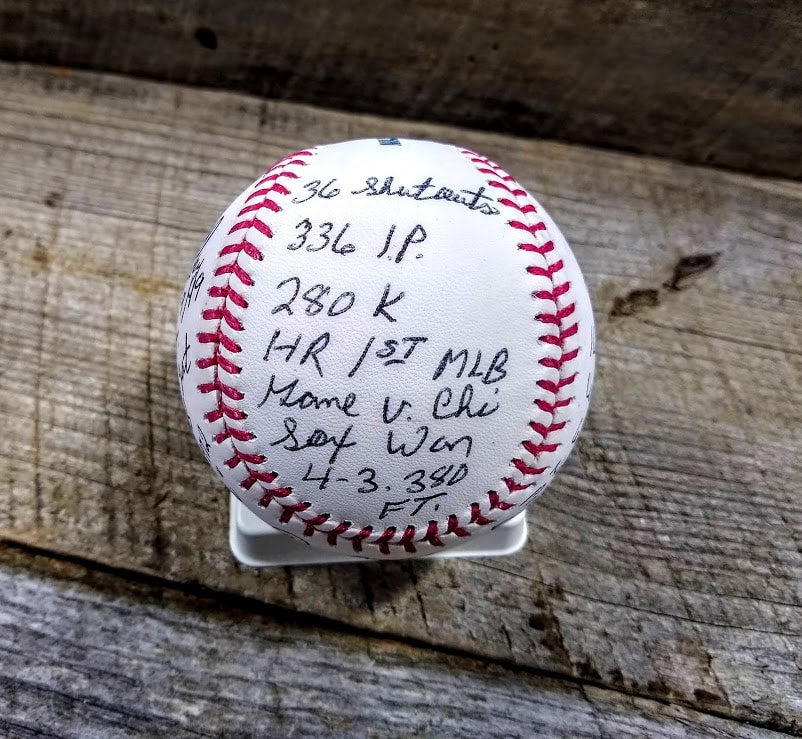 36 Shutouts
336 I.P.
280 K
HR 1ST MLB
Game v. Chi
Sox Won
4-3. 380
FT.